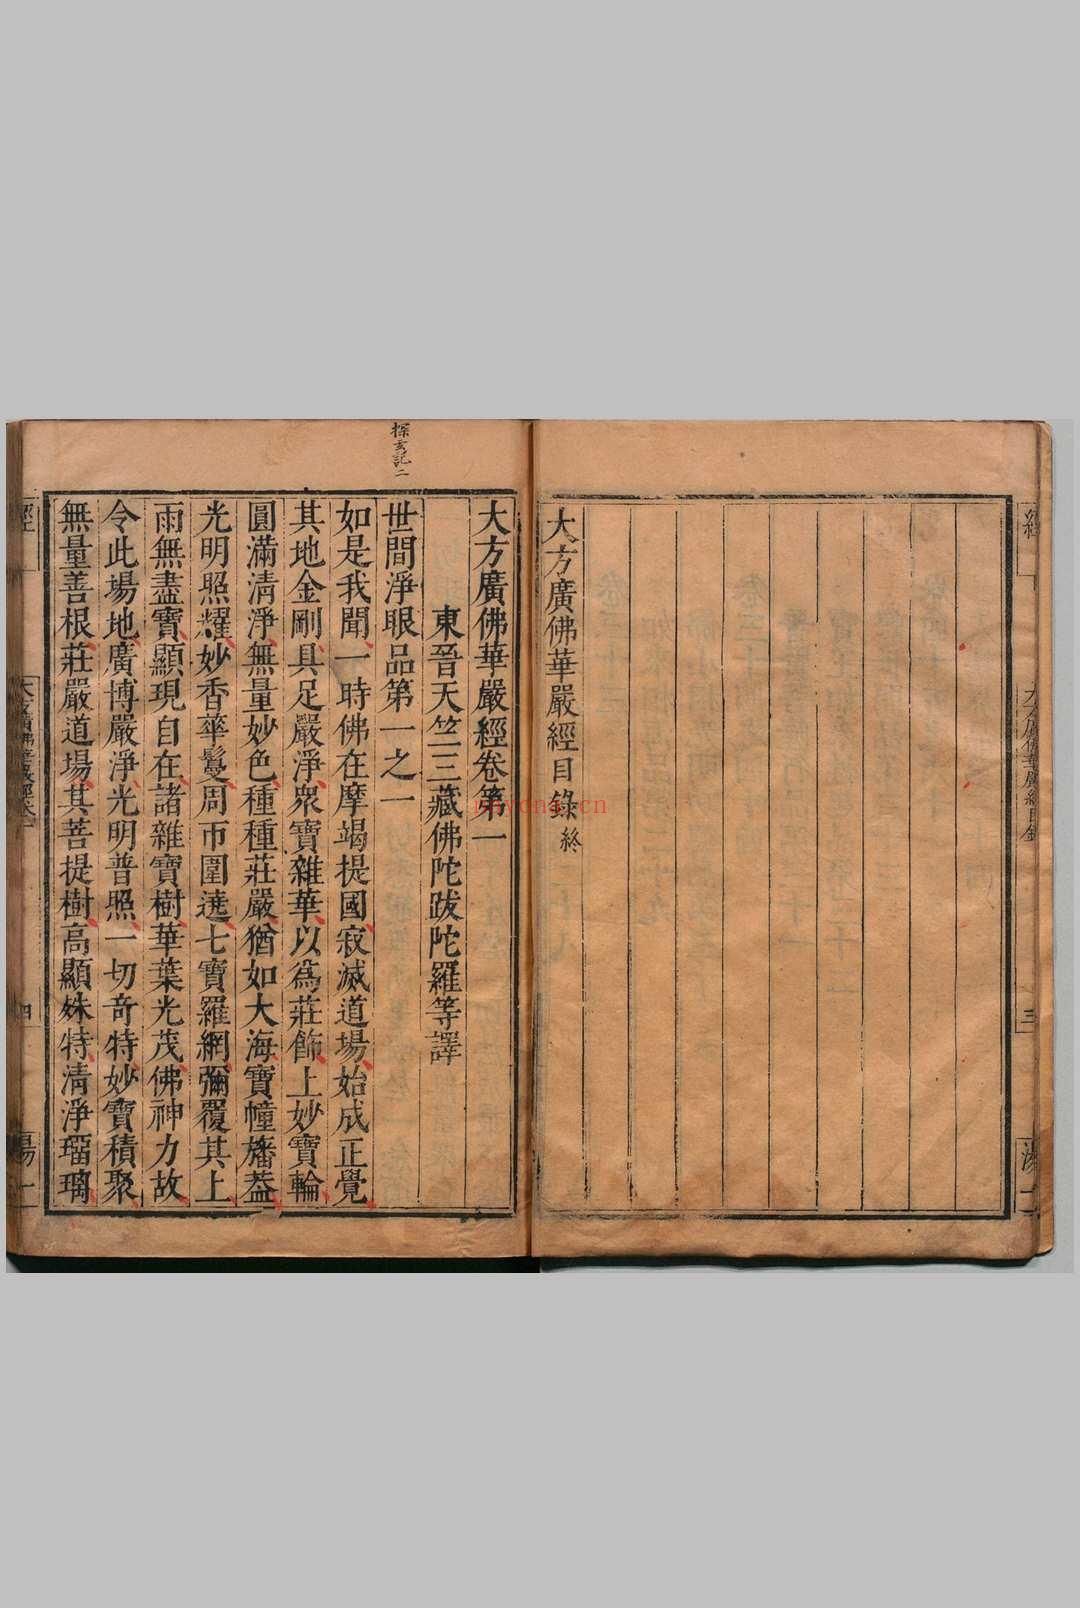 大方廣佛華嚴經目錄終
三
探玄記二
大方廣佛華嚴經卷第一
東晉天竺三藏佛陀跋陀羅等譯
世間淨眼品第一之一
如是我聞一時佛在摩竭提國寂滅道場始成正覺
其地金剛具足嚴淨衆寶雜華以爲莊飾上妙寶輪
圓滿清淨無量妙色種種莊嚴猶如大海寶幢旛葢
光明照耀妙香華鬘周帀圍遶七寶羅網彌覆其上
雨無盡寶顯現自在諸雜寶樹華葉光茂佛神力故
令此場地廣博嚴淨光明普照一切奇特妙寶積聚
無量善根莊嚴道場其菩提樹高顯姝特清淨瑠璃
四